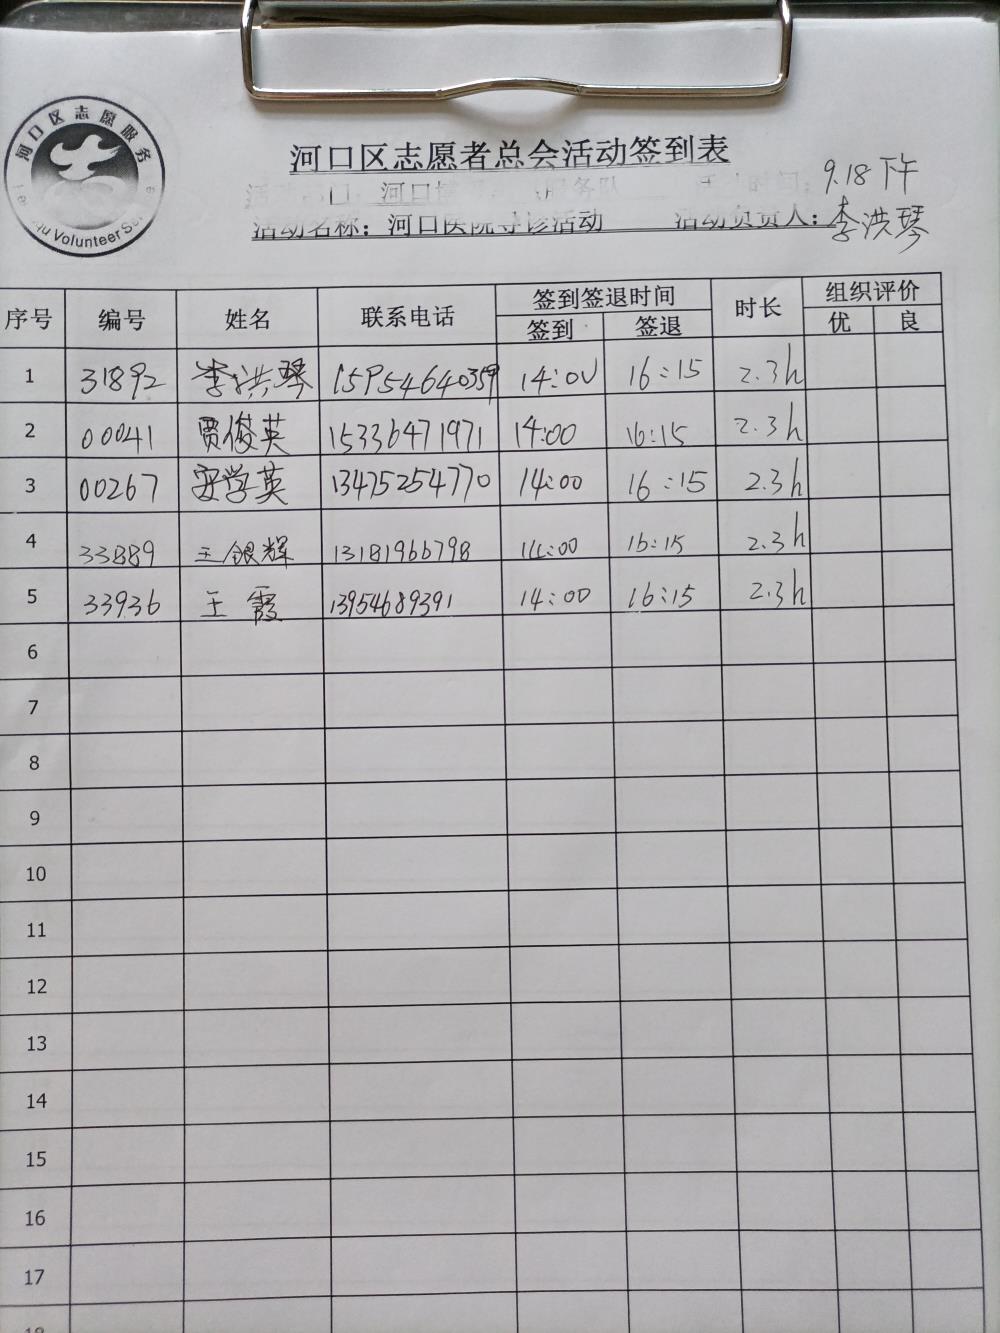 河口区志愿服务
Volunteer Se
河口区志愿者总会活动签到表
河口 服务队 时间： 9.18下午
活动名称：河口医院导诊活动 活动负责人：李洪琴
序号 编号 姓名 联系电话 签到签退时间 时长 组织评价
签到 签退 优 良
1 31892 李洪琴 15954640359 14:00 16:15 2.3h
2 00041 贾俊英 15336471971 14:00 16:15 2.3h
3 00267 安学英 13475254770 14:00 16:15 2.3h
4 33889 王银辉 13181966798 14:00 16:15 2.3h
5 33936 王霞 13954689391 14:00 16:15 2.3h
6
7
8
9
10
11
12
13
14
15
16
17
18